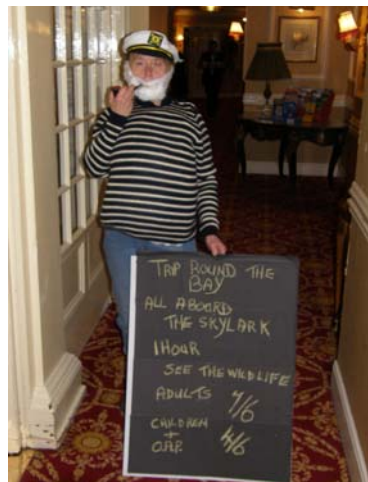 TRIP ROUND THE
BAY
ALL ABOARD
THE SKYLARK
1 HOUR
SEE THE WILDLIFE
ADULTS 7/6
CHILDREN
+
O.A.P. 4/6